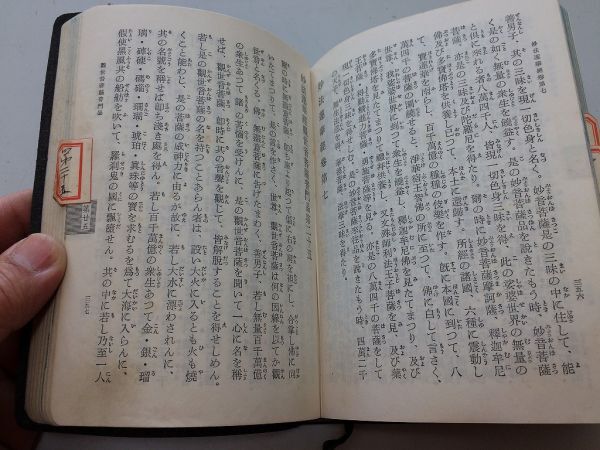 妙法蓮華經卷第七
三五六
善男子、其の三昧を現一切色身と名く。妙音菩薩是の三昧の中に住して、能
く是の如く無量の衆生を饒益す。是の妙音菩薩品を説きたもう時、妙音菩薩
と倶に來れる者八萬四千人、皆現一切色身三昧を得、此の娑婆世界の無量の
菩薩、亦是の三昧及び陀羅尼を得たり。爾の時に妙音菩薩摩訶薩、釋迦牟尼
佛及び多寶佛塔を供養し已って、本土に還歸す。所經の諸國、六種に震動し
て、寶蓮華を雨らし、百千萬億の種種の伎樂を作す。既に本國に到って、八
萬四千の菩薩の圍繞せると、淨華宿王智佛の所に至って、佛に白して言さく、
世尊、我娑婆世界に到って衆生を饒益し、釋迦牟尼佛を見たてまつり、及び
多寶佛塔を見たてまつって禮拜供養し、又文殊師利法王子菩薩を見、及び藥
妙法蓮華經卷第七
妙法蓮華經觀世音菩薩普門品第二十五
いたてまつりて、是の言を作さく、世尊、觀世音菩薩は何の因縁を以てか觀
世音と名くる。佛、無盡意菩薩に告げたまわく、善男子、若し無量百千萬億
の衆生あって、諸の苦惱を受けんに、是の觀世音菩薩を聞いて一心に名を稱
せば、觀世音菩薩即時に其の音聲を觀じて、皆解脱することを得せしめん。
若し是の觀世音菩薩の名を持つことあらん者は、設い大火に入るとも火も燒
くこと能わじ、是の菩薩の威神力に由るが故に。若し大水に漂わされんに、
其の名號を稱せば即ち淺き處を得ん。若し百千萬億の衆生あって金・銀・瑠
璃・硨磲・碼碯・珊瑚・琥珀・眞珠等の寶を求むるを爲て大海に入らんに、
假使黑風其の船舫を吹いて、羅刹鬼の國に飄墮せん。其の中に若し乃至一人
觀世音菩薩普門品
第廿五
三五七